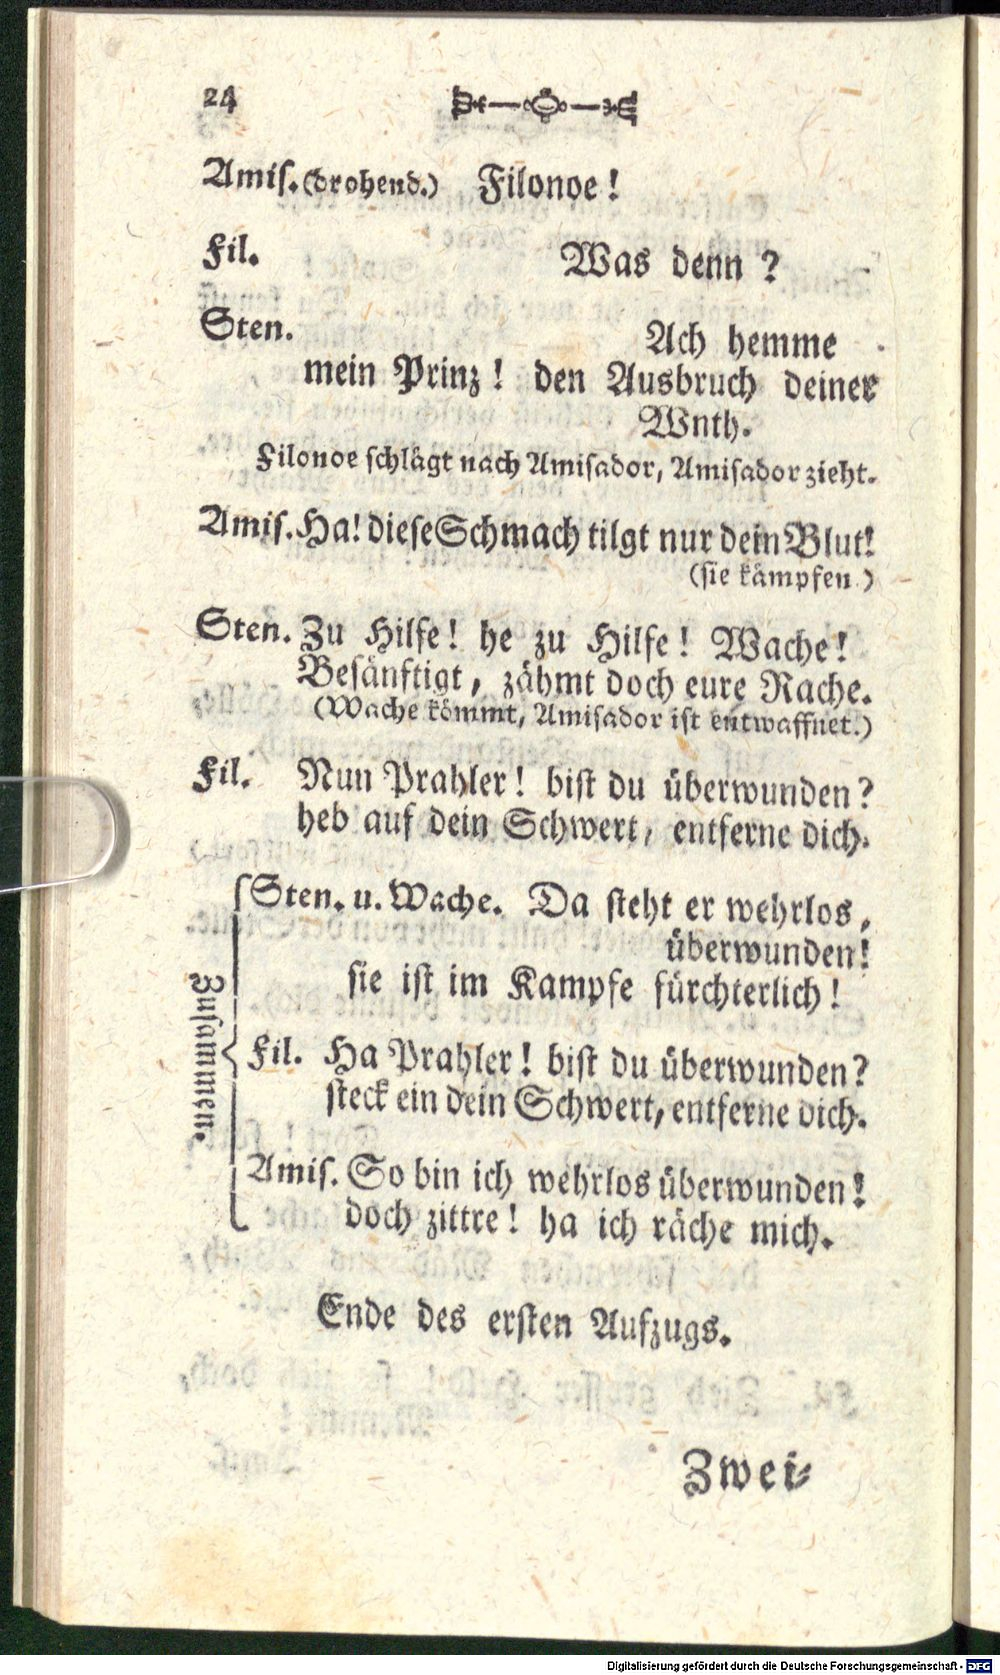 24
Amis. (drohend.) Filonoe!
Fil. Was denn?
Sten. Ach hemme
mein Prinz! den Ausbruch deiner
Wnth.
Filonoe schlägt nach Amisador, Amisador zieht.
Amis. Ha! diese Schmach tilgt nur dein Blut!
(sie kämpfen.)
Sten. Zu Hilfe! he zu Hilfe! Wache!
Besänftigt, zähmt doch eure Rache.
(Wache kömmt, Amisador ist entwaffnet.)
Fil. Nun Prahler! bist du überwunden?
heb auf dein Schwert, entferne dich.
Zusammen.
Sten. u. Wache. Da steht er wehrlos,
überwunden!
sie ist im Kampfe fürchterlich!
Fil. Ha Prahler! bist du überwunden?
steck ein dein Schwert, entferne dich.
Amis. So bin ich wehrlos überwunden!
doch zittre! ha ich räche mich.
Ende des ersten Aufzugs.
Zwei-
Digitalisierung gefördert durch die Deutsche Forschungsgemeinschaft - DFG